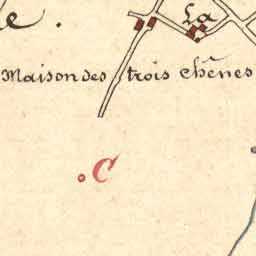 e.
La
Maison des trois chênes
C